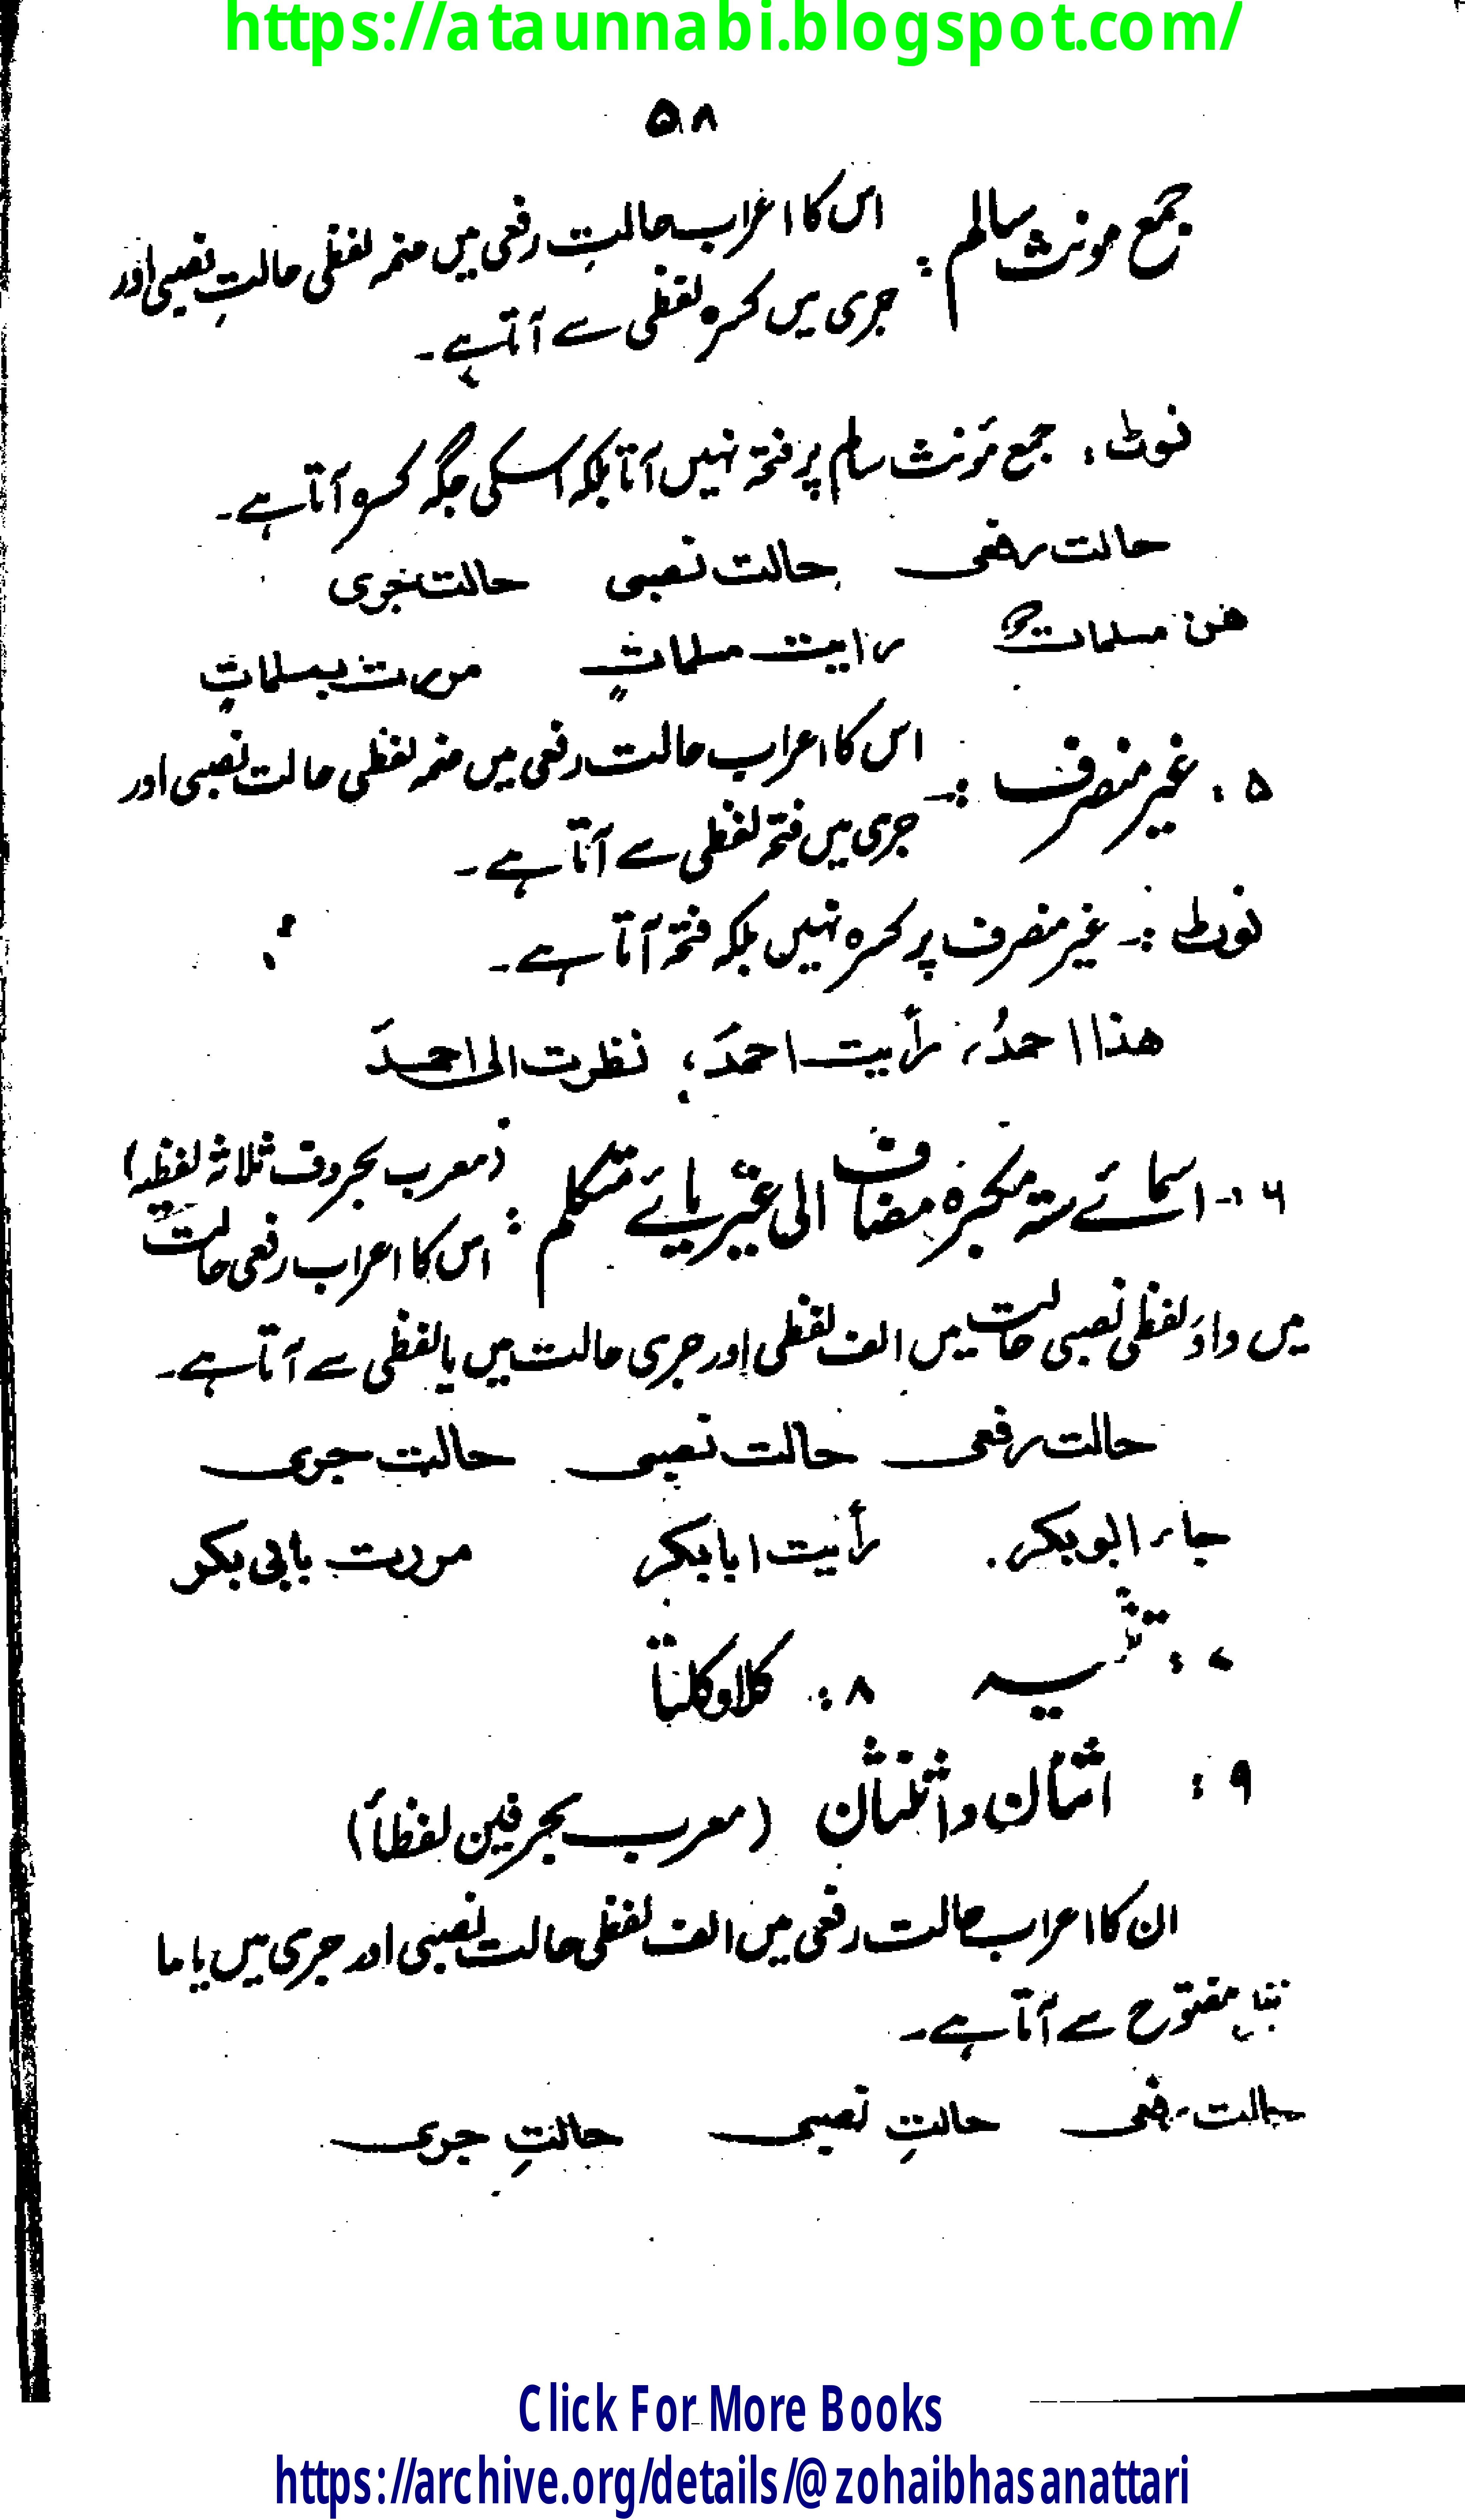 https://ataunnabi.blogspot.com/
۵۸
جمع مونث سالم : اس کا اعراب حالتِ رفعی میں ضمہ لفظی حالتِ نصبی اور
جری میں کسرہ لفظی سے آتا ہے۔
نوٹ : جمع مؤنث سالم پر فتحہ نہیں آتا بلکہ اسکی جگہ کسرہ آتا ہے۔
حالت رفعی حالت نصبی حالت جری
ھن مسلماتٌ رایت مسلماتٍ مررت بمسلماتٍ
۵ : غیر منصرف :۔ اس کا اعراب حالت رفعی میں ضمہ لفظی حالت نصبی اور
جری میں فتحہ لفظی سے آتا ہے۔
نوٹ :۔ غیر منصرف پر کسرہ نہیں بلکہ فتحہ آتا ہے۔
ھذا احمدُ، رأیت احمدَ، نظرت الی احمدَ
۶ :۔ اسمائے ستہ مکبرہ مضاف الی غیر یائے متکلم : (معرب بحروف ثلاثہ لفظیہ)
اس کا اعراب رفعی حالت
میں واؤ لفظی نصبی حالت میں الف لفظی اور جری حالت میں یا لفظی سے آتا ہے۔
حالت رفعی حالت نصبی حالت جری
جاء ابو بکر۔ رأیت ابا بکر مررت بابی بکر
۷ : تثنیہ ۸ : کلا و کلتا
۹ : اثنان و اثنتان (معرب بحرفین لفظاً)
ان کا اعراب حالت رفعی میں الف لفظی حالت نصبی اور جری میں یا ما
مفتوح سے آتا ہے۔
حالت رفعی حالتِ نصبی حالتِ جری
Click For More Books
https://archive.org/details/@zohaibhasanattari